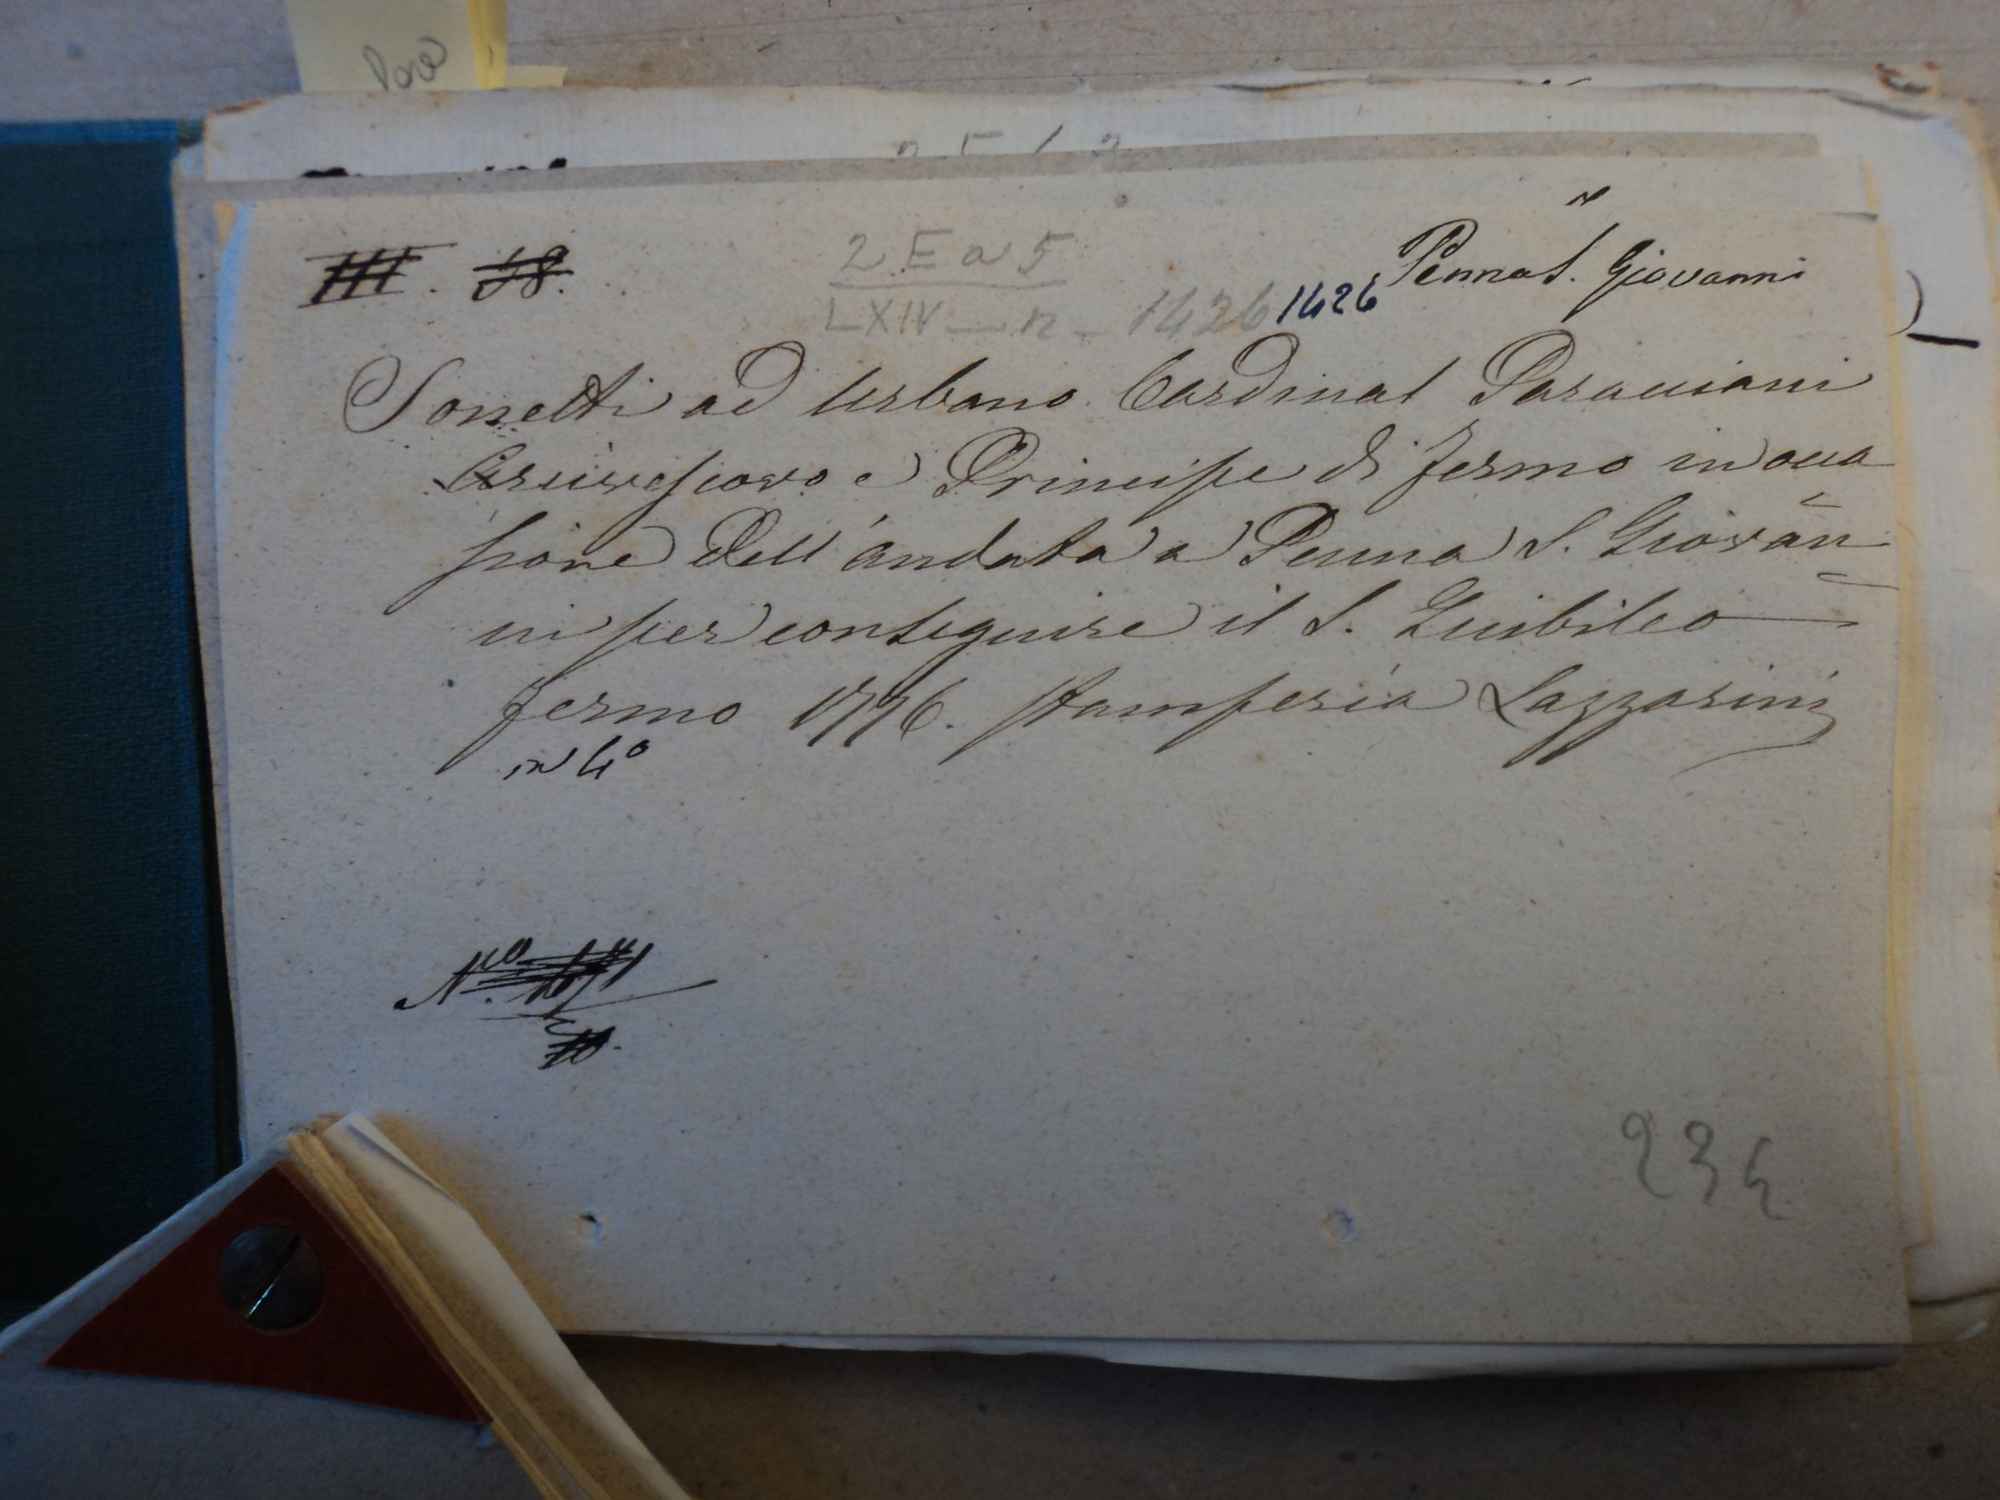 Penna S. Giovanni
III. 58.
2 E a 5
LXIV — n - 1426 1426
Sonetti ad Urbano Cardinal Paracciani
Arcivescovo e Principe di Fermo in occa
sione dell'andata a Penna S. Giovan
ni per conseguire il S. Giubileo
Fermo 1776. Stamperia Lazzarini
in 4º
Nº.
234